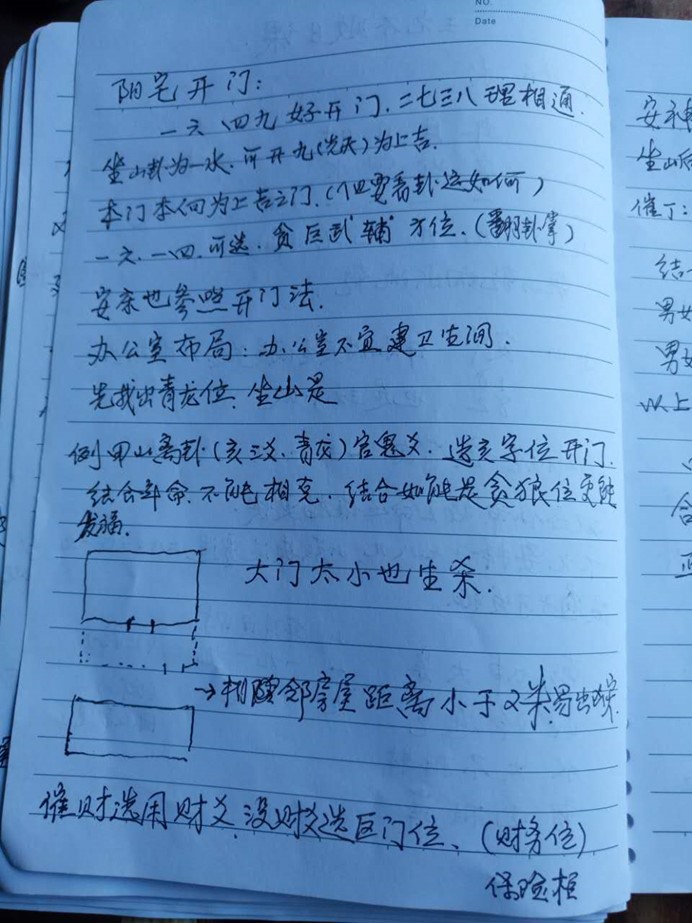 NO.
Date
阳宅开门:
一六四九好开门.二七三八理相通.
坐山卦为一水.可开九(先天)为上吉.
本门本向为上吉之门.(但要看卦运如何)
一六.一四.可选.贪巨武"辅"方位.(翻卦掌)
安床也参照开门法.
办公室布局:办公室不宜建卫生间.
先找出青龙位.坐山是
例甲山离卦(亥三爻.青龙)官鬼爻.选亥字位开门.
结合年命.不能相克.结合如能是贪狼位更能
发福.
大门太小也生杀.
→相隔邻房屋距离小于2米易出
催财选用财爻.没财爻选巨门位、(财务位)
保险柜
安神
坐山
催丁:
结
男女
男女
以上
合